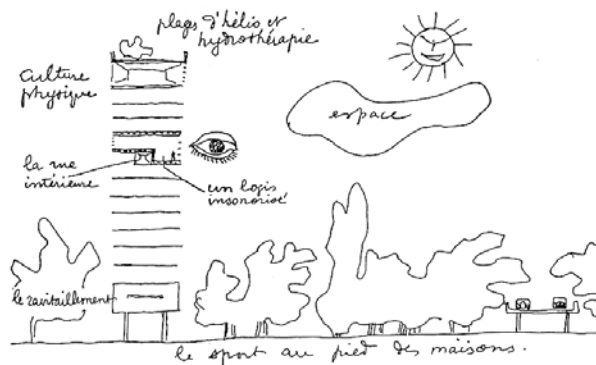 plages d'hélio et
hydrothérapie
Culture
physique
espace
la rue
intérieure
un logis
insonorisé
le ravitaillement
le sport au pied des maisons.